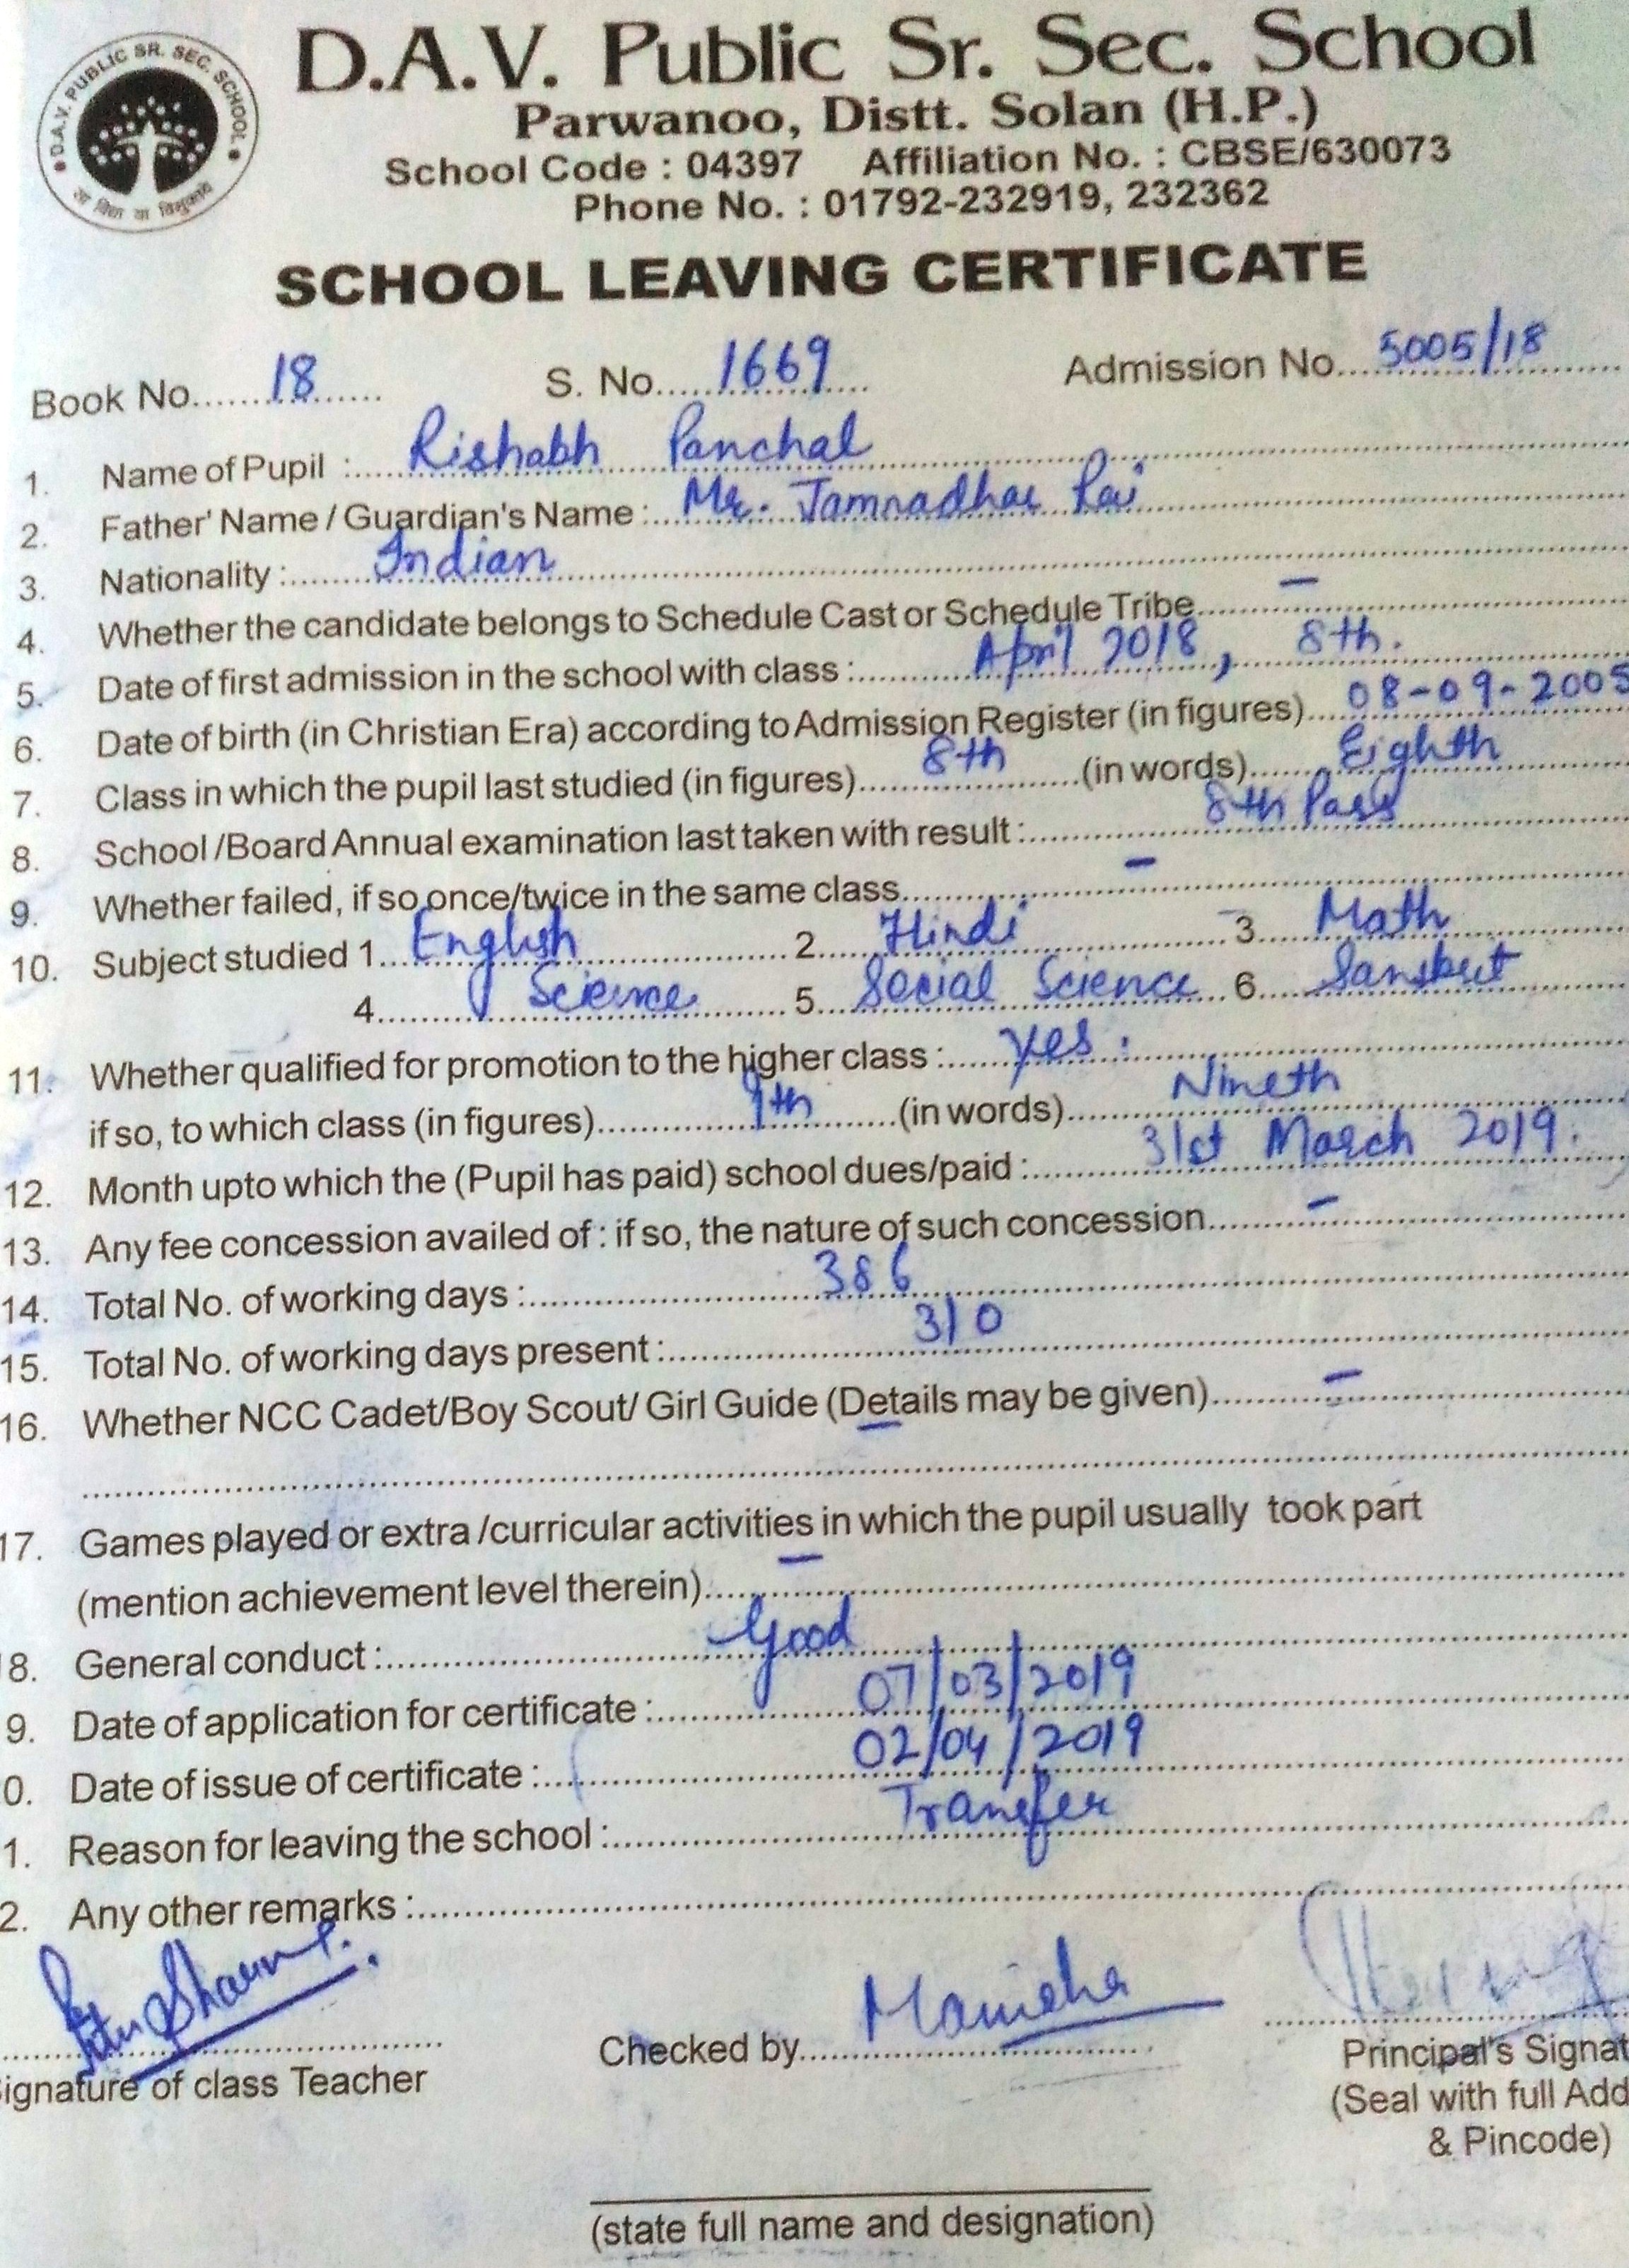 D.A.V. PUBLIC SR. SEC. SCHOOL
D.A.V. Public Sr. Sec. School
Parwanoo, Distt. Solan (H.P.)
School Code : 04397 Affiliation No. : CBSE/630073
Phone No. : 01792-232919, 232362
SCHOOL LEAVING CERTIFICATE
Book No. 18 S. No. 1669 Admission No. 5005/18
1. Name of Pupil : Rishabh Panchal
2. Father' Name / Guardian's Name : Mr. Jamnadhar Rai
3. Nationality : Indian
4. Whether the candidate belongs to Schedule Cast or Schedule Tribe –
5. Date of first admission in the school with class : April 2018, 8th.
6. Date of birth (in Christian Era) according to Admission Register (in figures) 08-09-2005
7. Class in which the pupil last studied (in figures) 8th (in words) Eighth
8. School /Board Annual examination last taken with result : 8th Pass
9. Whether failed, if so once/twice in the same class –
10. Subject studied 1. English 2. Hindi 3. Math
4. Science 5. Social Science 6. Sanskrit
11. Whether qualified for promotion to the higher class : Yes.
if so, to which class (in figures) 9th (in words) Nineth
12. Month upto which the (Pupil has paid) school dues/paid : 31st March 2019.
13. Any fee concession availed of : if so, the nature of such concession –
14. Total No. of working days : 386
15. Total No. of working days present : 310
16. Whether NCC Cadet/Boy Scout/ Girl Guide (Details may be given) –
17. Games played or extra /curricular activities in which the pupil usually took part
(mention achievement level therein) –
8. General conduct : Good
9. Date of application for certificate : 07/03/2019
0. Date of issue of certificate : 02/04/2019
1. Reason for leaving the school : Transfer
2. Any other remarks :
Sharma
Checked by Manisha
ignature of class Teacher
Principal's Signat
(Seal with full Add
& Pincode)
(state full name and designation)